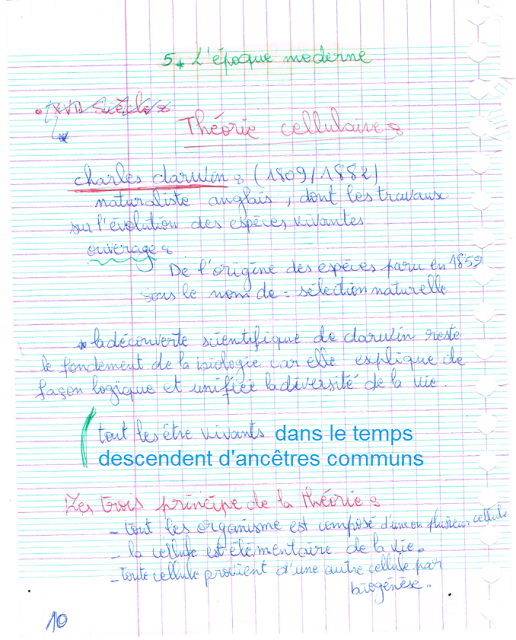 5* L'époque moderne
• XVII Siécle
Théorie cellulaire :
charles darwin : (1809/1882)
naturaliste anglais, dont les travaux
sur l'évolution des espèces vivantes
ouverage :
De l'origine des espèces paru en 1859
sous le nom de = sélection naturelle
* la découverte scientifique de darwin reste
le fondement de la biologie car elle explique de
façon logique et unifiée la diversité de la vie.
tout les être vivants dans le temps
descendent d'ancêtres communs
Les trois principe de la théorie :
- tout les organisme est composé d'un ou plusieur cellule
- la cellule est élémentaire de la vie.
- toute cellule provient d'une autre cellule par
biogénèse.
10